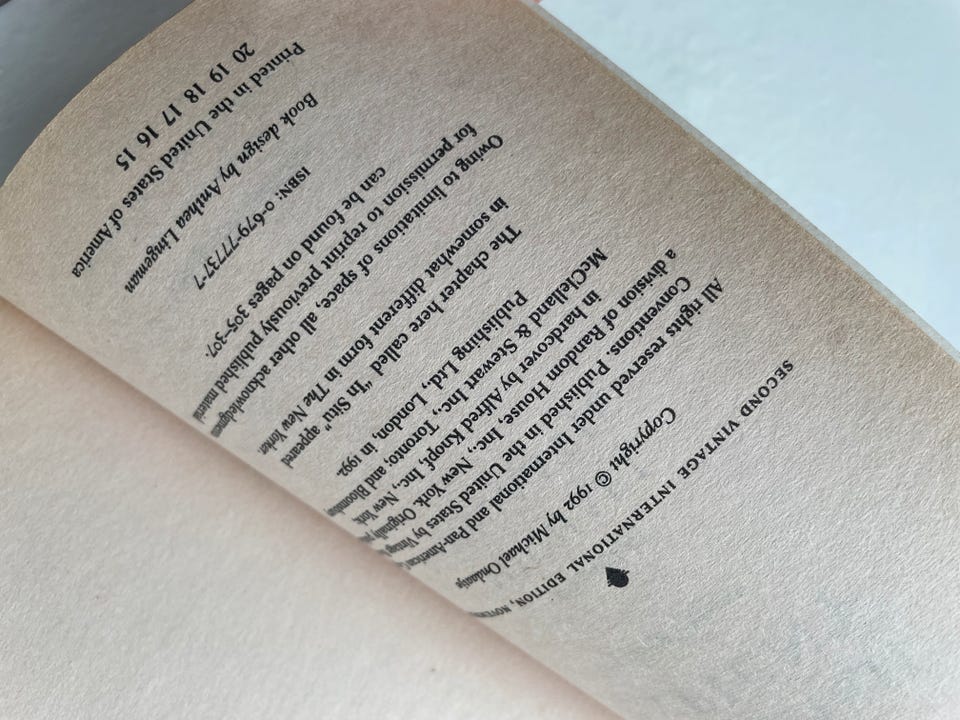 SECOND VINTAGE INTERNATIONAL EDITION,
Copyright © 1992 by Michael Ondaatje
All rights reserved under International and Pan-American
Conventions. Published in the United States by Vintage
a division of Random House, Inc., New York. Originally
in hardcover by Alfred Knopf, Inc., New York
McClelland & Stewart Inc., Toronto, and
Publishing Ltd., London, in 1992.
The chapter here called "In Situ" appeared
in somewhat different form in The New Yorker.
Owing to limitations of space, all other
for permission to reprint previously published material
can be found on pages 305-307.
ISBN: 0-679-77737-7
Book design by Anthea Lingeman
Printed in the United States of America
20 19 18 17 16 15